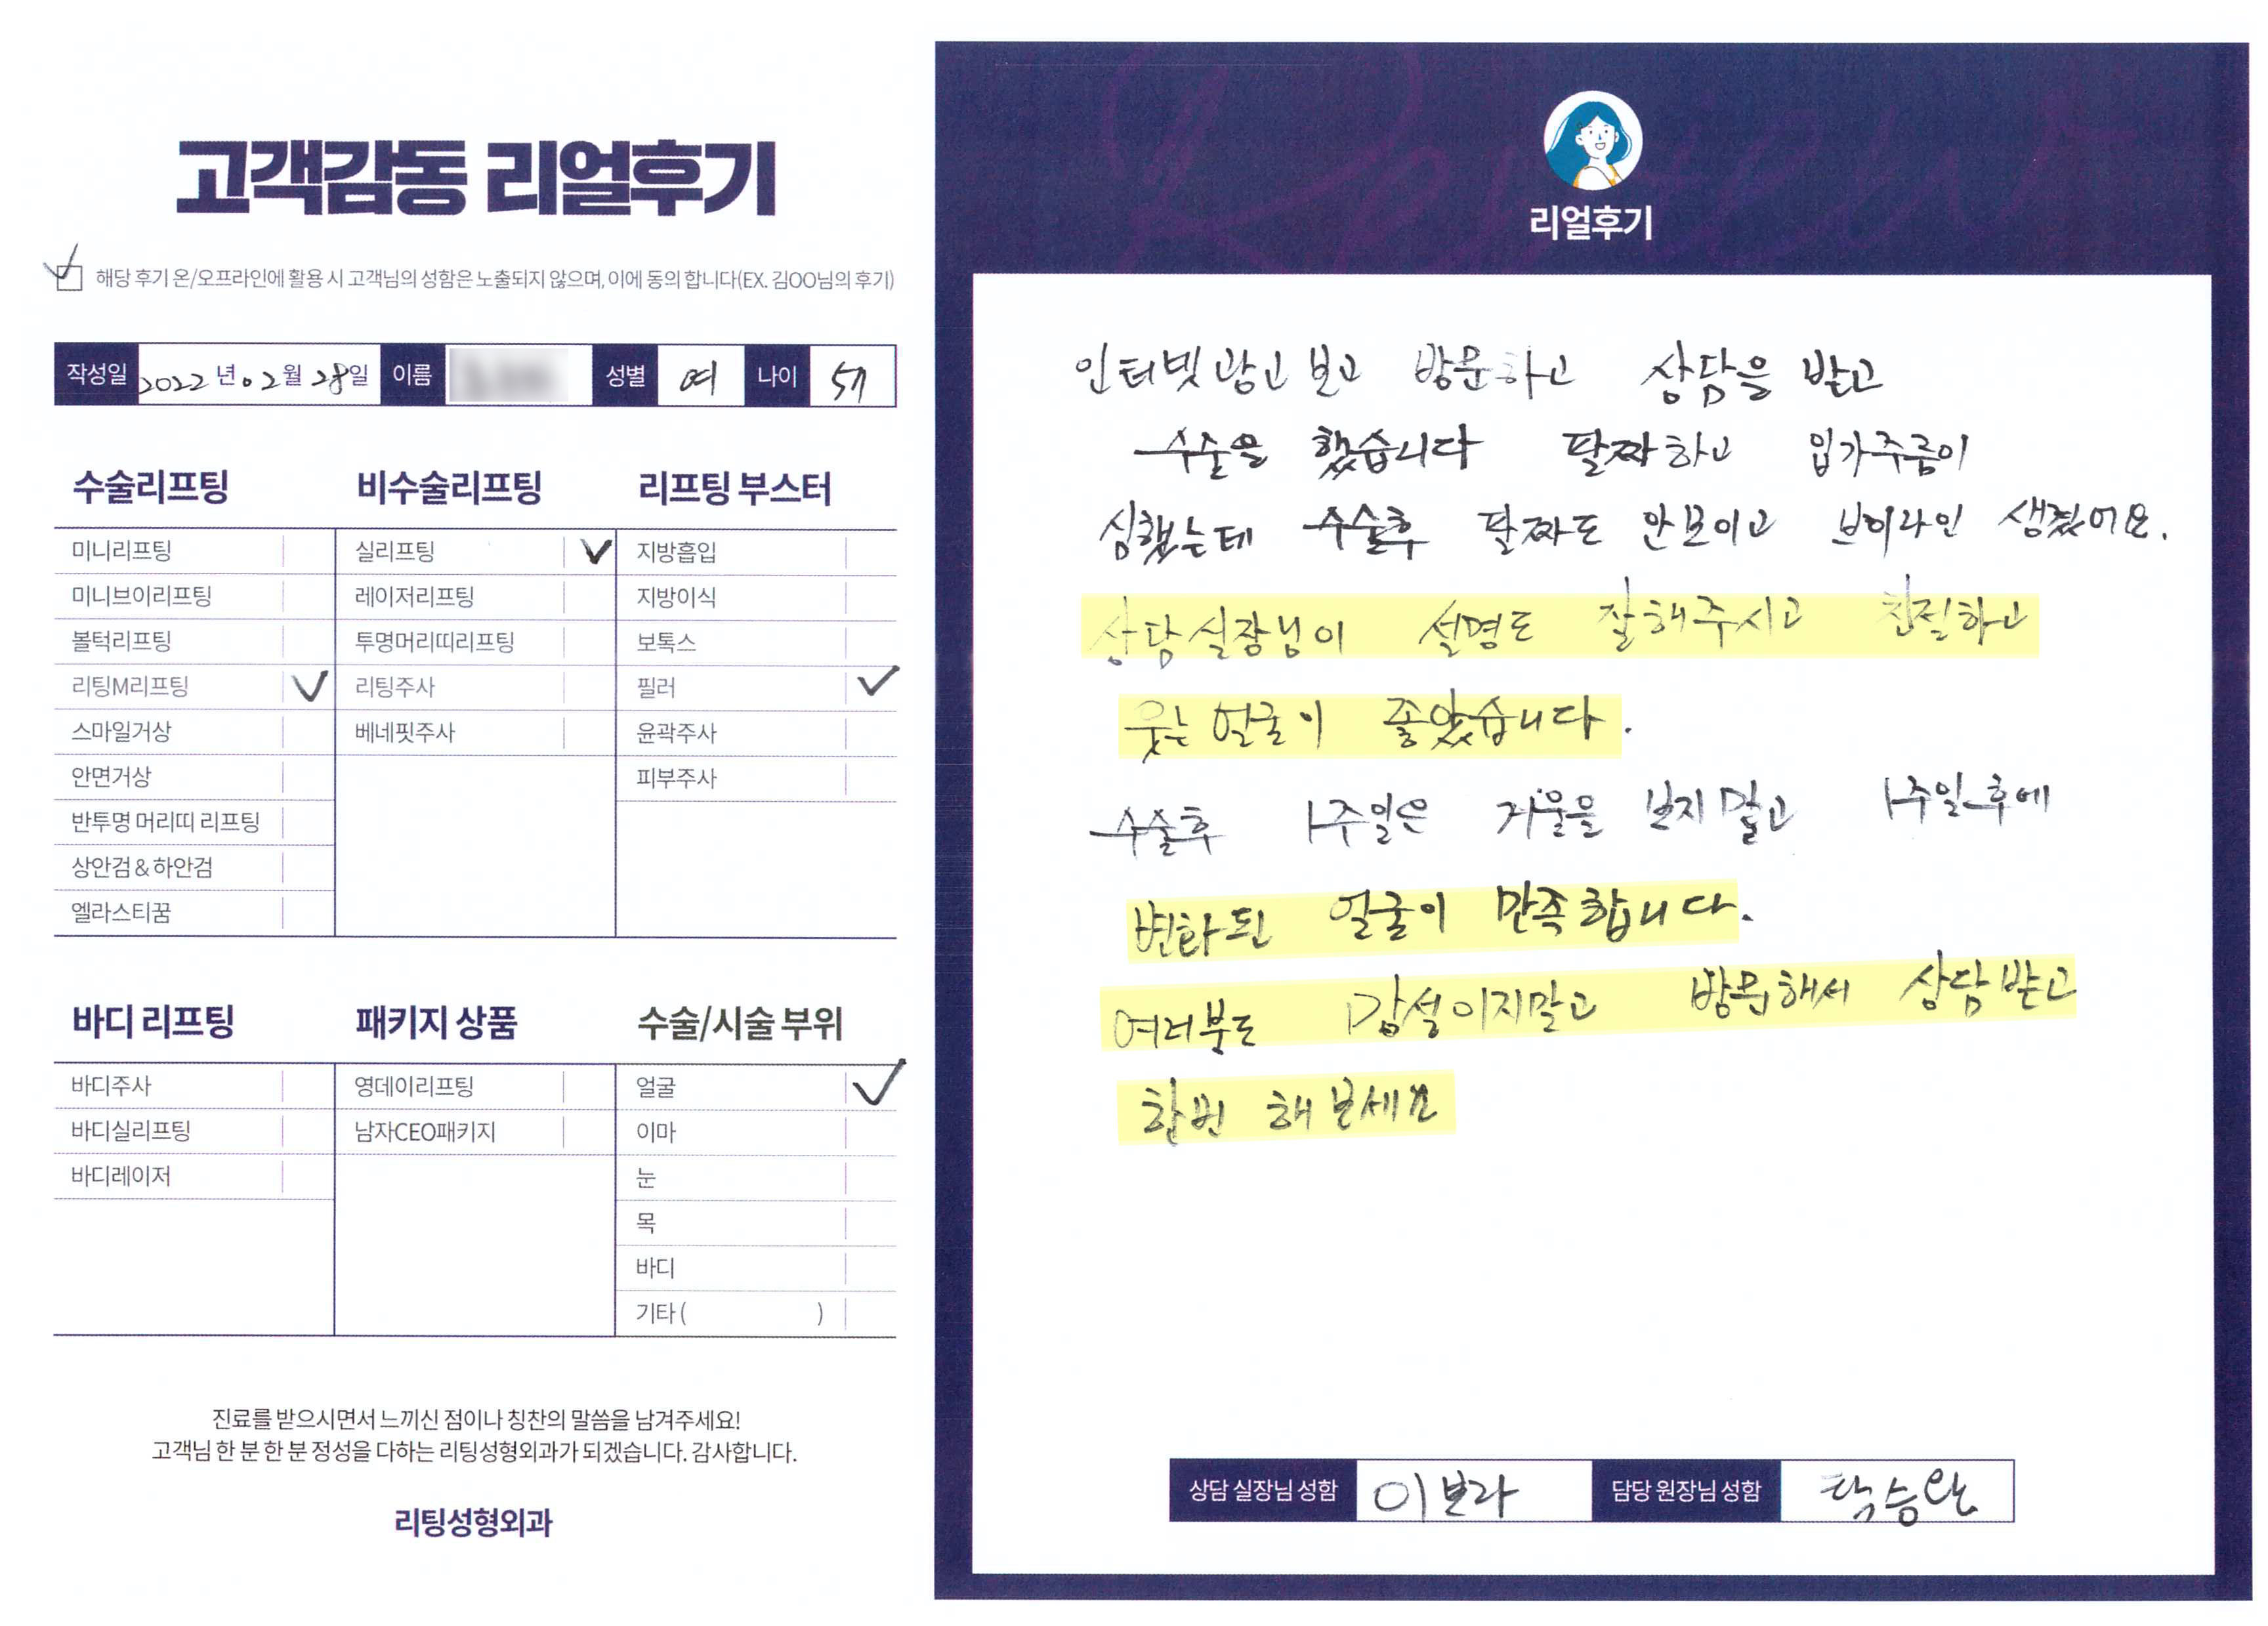 고객감동 리얼후기
해당 후기 온/오프라인에 활용 시 고객님의 성함은 노출되지 않으며, 이에 동의 합니다(EX. 김OO님의 후기)
작성일 2022년 02월 28일 이름 성별 여 나이 57
수술리프팅 비수술리프팅 리프팅 부스터
미니리프팅 실리프팅 지방흡입
미니브이리프팅 레이저리프팅 지방이식
볼턱리프팅 투명머리띠리프팅 보톡스
리팅M리프팅 리팅주사 필러
스마일거상 베네핏주사 윤곽주사
안면거상 피부주사
반투명 머리띠 리프팅
상안검 & 하안검
엘라스티꿈
바디 리프팅 패키지 상품 수술/시술 부위
바디주사 영데이리프팅 얼굴
바디실리프팅 남자CEO패키지 이마
바디레이저 눈
목
바디
기타 ( )
진료를 받으시면서 느끼신 점이나 칭찬의 말씀을 남겨주세요!
고객님 한 분 한 분 정성을 다하는 리팅성형외과가 되겠습니다. 감사합니다.
리팅성형외과
리얼후기
인터넷 광고 보고 방문하고 상담을 받고
수술을 했습니다 팔짜하고 입가주름이
심했는데 수술후 팔짜도 안보이고 브이라인 생겼어요.
상담실장님이 설명도 잘해주시고 친절하고
웃는 얼굴이 좋았습니다.
수술후 1주일은 거울을 보지말고 1주일후에
변화된 얼굴이 만족합니다.
여러분도 망설이지말고 방문해서 상담받고
한번 해보세요
상담 실장님 성함 이보라 담당 원장님 성함